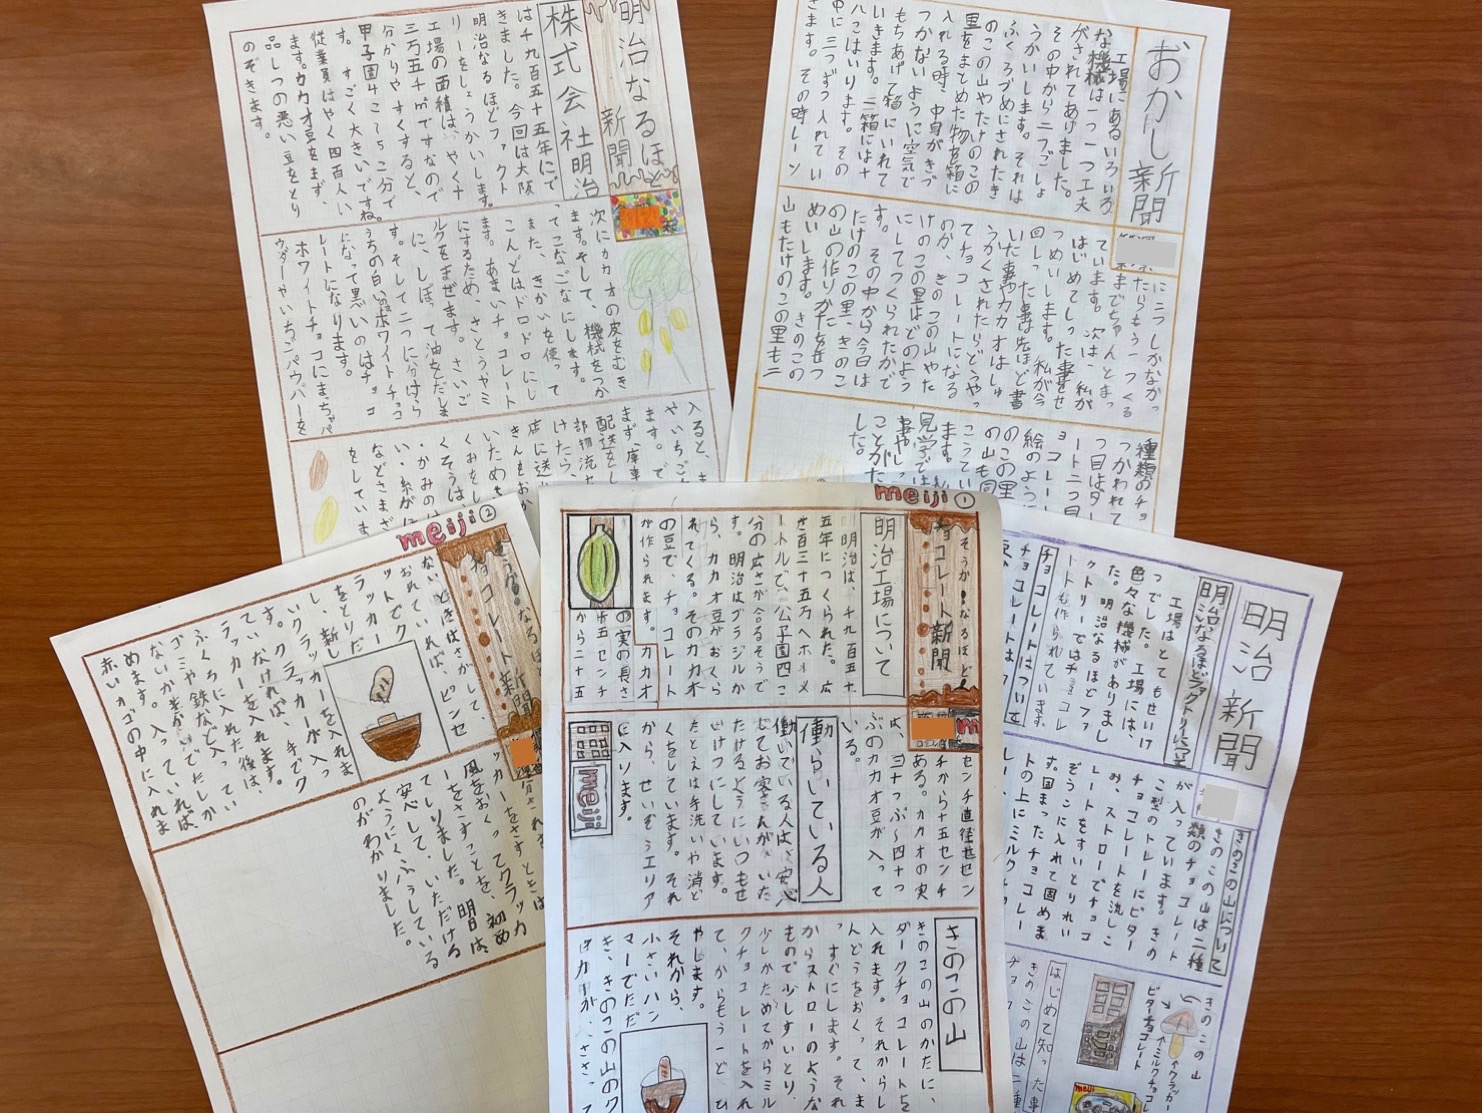 明治なるほど
新聞
株式会社明治
は千九百五十五年にで
きました。今回は大阪
明治なるほどファクト
リーをしょうかいします。
工場の面積は、やく十
三万五千㎡ですなので
分かりやすくすると、
甲子園4こ~5こ分で
す。すごく大きいですね。
従業員はやく四百人い
ます。カカオ豆をまず、
品しつの悪い豆をとり
のぞきます。
次にカカオの皮をむき
ます。そして、機械をつか
ってこなごなにします。
また、きかいを使って
こんどはドロドロにし
ます。あまいチョコレート
にするため、さとうやミ
ルクをまぜます。さいご
に、しぼって油をだしま
す。そして二つに分けら
うちの白いのはホワイトチョコ
になって黒いのはチョコ
レートになります。
ホワイトチョコにまっちゃパ
ウダーやいちごパウパーを
入ると、ま
やいちご
ます。で
まず、庫車
配送をし
部物流セ
けたら、
店に送
きんをおか
いためも
くそうは
くおをし
・かみの
い・糸がほ
などさまざ
をしていま
おかし新聞
工場にあるいろいろ
な機械は一つ一つ工夫
がされてありました。
その中から二つごしょ
うかいします。それは
ふくろづめにされたき
のこの山やたけのこの
里をまとめた物を箱に
入れる時、中身がきづ
つかないように空気で
もちあげて箱にいれて
いきます。一箱には十
八こはいります。その
中に三つずつ入れてい
ます。その時レーン
に二つしかなかっ
たらもう一つくる
までちゃんとまっ
ています。次は、私が
はじめてしった事をせ
つめいします。私が今
回しった事は先ほど書
いた事やカカオはしゅ
うかくされたらどうやっ
てチョコレートになる
のか、きのこの山やた
けのこの里はどのよう
にしてつくられたかで
す。その中から今日は
たけのこの里、きのこ
の山の作りかたをせつ
めいします。きのこの
山もたけのこの里も二
種類のチョ
つかわれて
つ目はダ
ート二つ目
ョコレー
絵のように
のこの里
の山も同
こってい
ます。私
見学では
事やしっ
ことがた
した。
meiji②
チョコレート新聞
ないときはさがして、
おれていれば、ピンセ
ットでク
ラッカー
をとりだ
し、新し
いクラッカーを入れま
す。クラッカーが入っ
ていなければ、手でク
ラッカーを入れます。
ふくろに入れた後は、
ゴミや鉄など入ってい
ないか半がいでたしか
めます。入っていれば、
赤いカゴの中に入れま
ッカーをさすときは
風をおくってクラッカ
ーをさすことを、初め
てしりました。明日は、
安心して、いただける
ようにくふうしている
のがわかりました。
meiji①
そうか!なるほど!
チョコレート新聞
明治工場について
明治は、千九百五十
五年につくられた。広
さ百三十五万ヘホィメ
ートルで、公子園四こ
分の広さが合るそうで
す。明治はブラジルか
ら、カカオ豆がおくら
れてくる。そのカカオ
の豆で、チョコレート
が作られます。カカオ
の実の長さ
は五センチ
から二十五
センチ直径せセン
チから十五センチ
ある。カカオの実
は、三十つぶ~四十つ
ぶのカカオ豆が入って
いる。
働らいている人
働いている人は、安心
してお客さんが、いた
だけるようにいつもせ
いけつにしています。
たとえは手洗いや消ど
くをしています。それ
から、せいぞうエリア
に入ります。
meiji
きのこの山
きのこの山のかたに、
ダークチョコレートを
入れます。それからし
んどうをおくって、ま
っすぐにします。それ
からストローのような
もので少しすいとり、
少しかためてからミル
クチョコレートを入れ
て、からもうーど、ひ
やします。
それから、
小さいハン
マーでただ
き、きのこの山のク
明治新聞
明治なるほどファクトリーについて
工場はとてもせいけ
つでした。工場には、
色々な機械がありまし
た。明治なるほどファ
クトリーではチョコレ
ートも作られています。
チョコレートはについて
チョコレートは、ク
きのこの山について
きのこの山は二種
類のチョコレート
が入っています。きの
こ型のトレーにビター
チョコレートを流しこ
み、ストローでチョコ
レートをすいとりれい
ぞうこに入れて固めま
す。固まったチョコレー
トの上にミルクチョコ
きのこの山
←クラッカー
←ミルクチョコレ
ビターチョコレート
meiji
はじめて知った事
きのこの山は二種